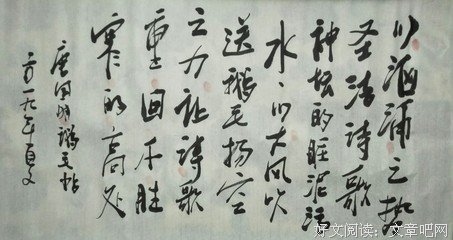 以汹涌之势
圣洁诗歌
神坛的脏泥污
水、以大风吹
送鹅毛扬空
之力让诗歌
重回不胜
寒的高处
唐国明鹅毛帖
一九年
好文阅读：文章吧网